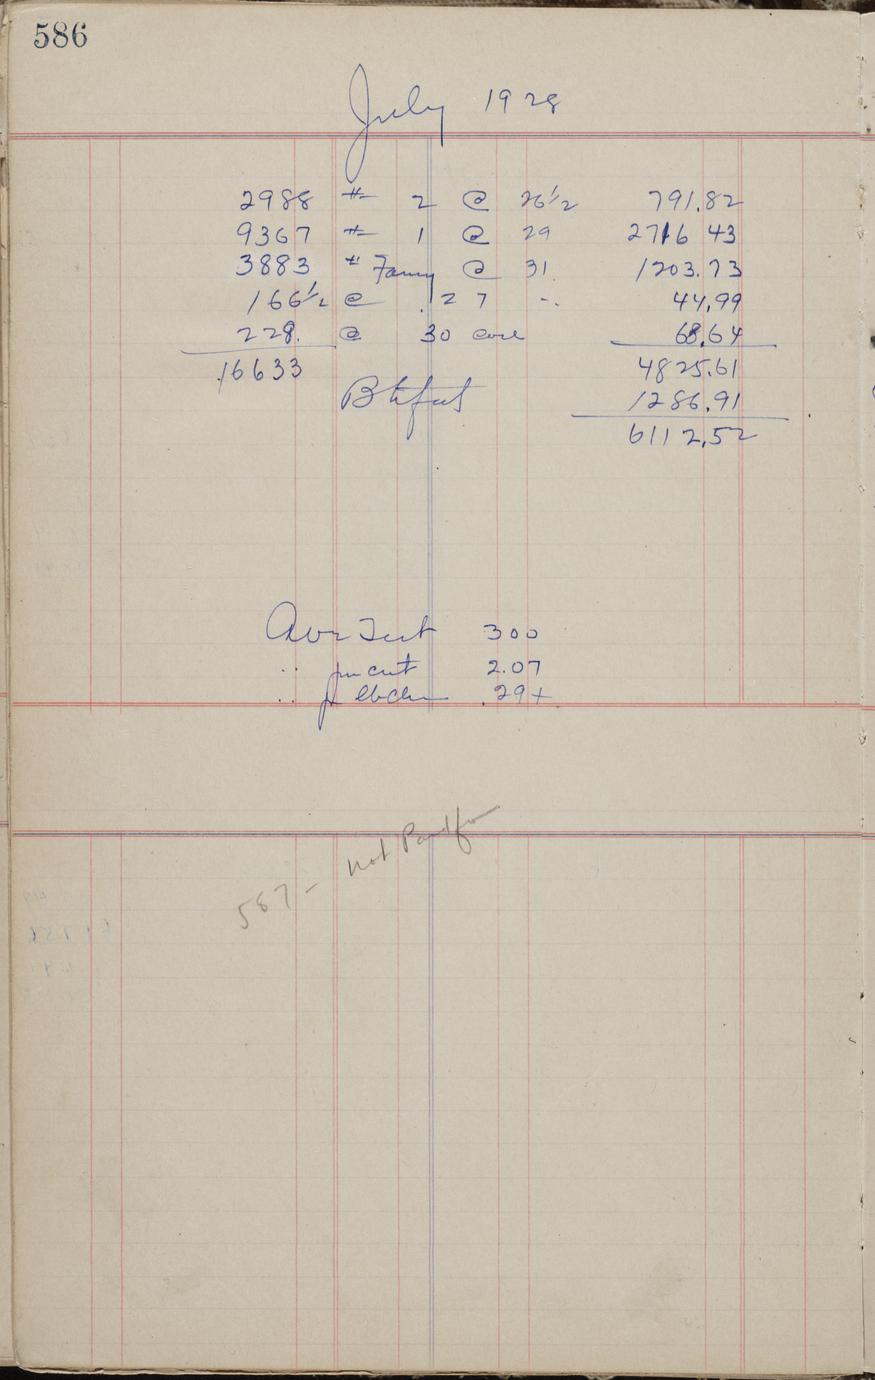 586
July 1928
2988 # 2 @ 26 1/2 791.82
9367 # 1 @ 29 2716 43
3883 # Fancy @ 31 1203.73
166 1/2 @ .27 44.99
228. @ 30 68.64
16633 4825.61
Btrfat 1286.91
6112.52
Avr Test 300
" per cwt 2.07
" 29+
587 - not Paid for